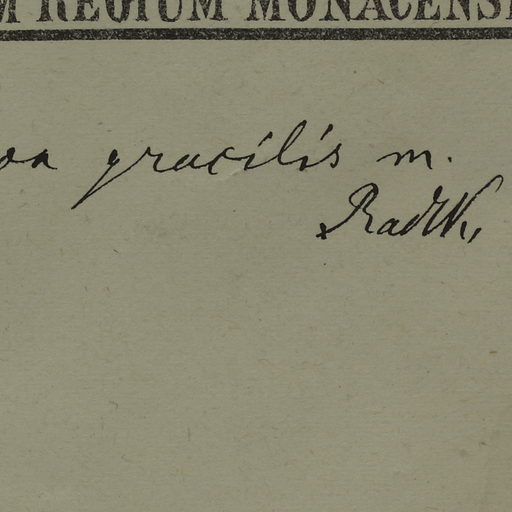 M REGIUM MONACENS
oa gracilis m.
Radlk.